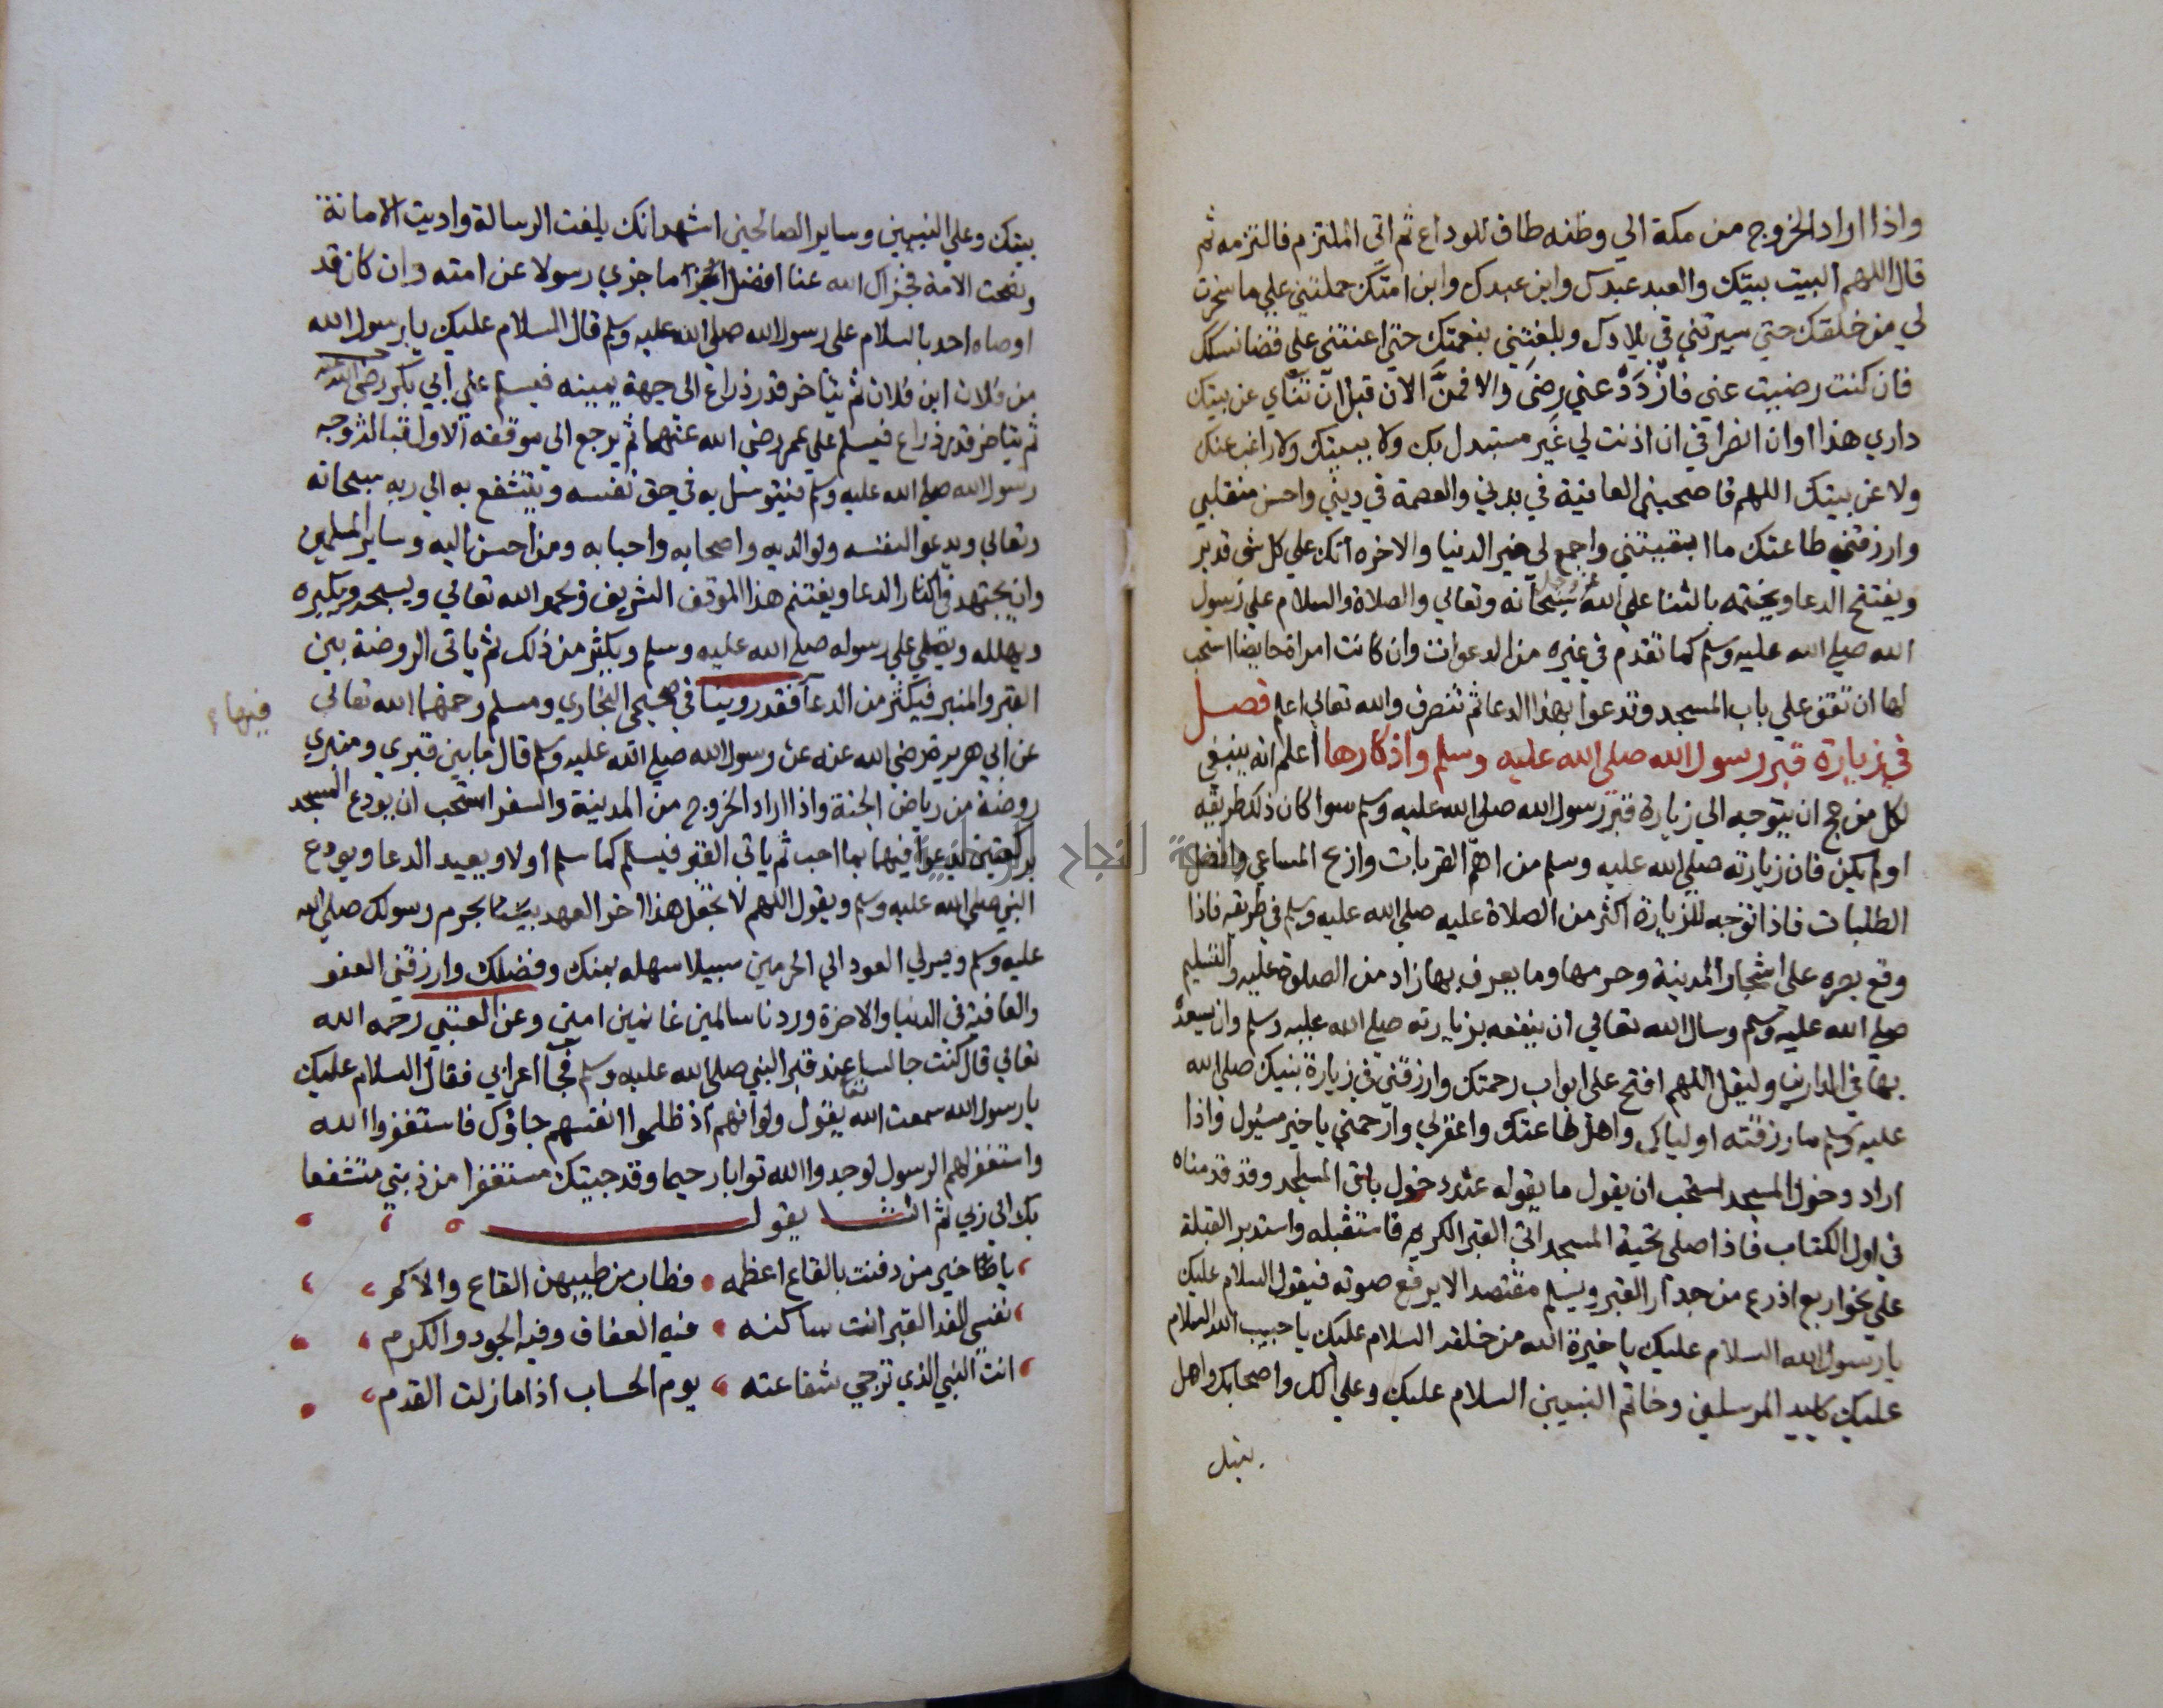 واذا اراد الخروج من مكة الي وطنه طاف للوداع ثم اتي الملتزم فالتزمه ثم
قال اللهم البيت بيتك والعبد عبدك وابن عبدك وابن امتك حملتني علي ما سخرت
لي من خلقك حتي سيرتني في بلادك وبلغتني بنعمتك حتي اعنتني علي قضا نسكك
فان كنت رضيت عني فازدد عني رضي والا فمن الان قبل ان تنأي عن بيتك
داري هذا اوان انصرافي ان اذنت لي غير مستبدل بك ولا ببيتك ولا راغب عنك
ولا عن بيتك اللهم فاصحبني العافية في بدني والعصمة في ديني واحسن منقلبي
وارزقني طاعتك ما ابقيتني واجمع لي خير الدنيا والاخره انك علي كل شي قدير
ويفتتح الدعا ويختمه بالثنا علي الله سبحانه وتعالي والصلاة والسلام علي رسول
الله صلي الله عليه وسلم كما تقدم في غيره من الدعوات وان كانت امراة حايضا استحب
لها ان تقف علي باب المسجد وتدعوا بهذا الدعا ثم تنصرف والله تعالي اعلم فصل
في زيارة قبر رسول الله صلي الله عليه وسلم واذكارها اعلم انه ينبغي
لكل من حج ان يتوجه الي زيارة قبر رسول الله صلي الله عليه وسلم سوا كان ذلك طريقه
او لم يكن فان زيارته صلي الله عليه وسلم من اهم القربات واربح المساعي وافضل
الطلبات فاذا توجه للزيارة اكثر من الصلاة عليه صلي الله عليه وسلم في طريقه فاذا
وقع بصره علي اشجار المدينة وحرمها وما يعرف بها زاد من الصلوة عليه والتسليم
صلي الله عليه وسلم وسال الله تعالي ان ينفعه بزيارته صلي الله عليه وسلم وان يسعده
بها في الدارين وليقل اللهم افتح علي ابواب رحمتك وارزقني في زيارة نبيك صلي الله
عليه وسلم ما رزقته اولياك واهل طاعتك واغفرلي وارحمني يا خير مسئول واذا
اراد دخول المسجد استحب ان يقول ما يقوله عند دخول باقي المسجد وقد قدمناه
في اول الكتاب فاذا صلي تحية المسجد اتي القبر الكريم فاستقبله واستدبر القبلة
علي نحو اربع اذرع من جدار القبر ويسلم مقتصدا لا يرفع صوته فيقول السلام عليك
يا رسول الله السلام عليك يا خيرة الله من خلقه السلام عليك يا حبيب الله السلام
عليك يا سيد المرسلين وخاتم النبيين السلام عليك وعلي الك واصحابك واهل
بيتك
بيتك وعلي النبيين وساير الصالحين اشهد انك بلغت الرسالة واديت الامانة
ونصحت الامة فجزاك الله عنا افضل ما جزي رسولا عن امته وان كان قد
اوصاه احد بالسلام علي رسول الله صلي الله عليه وسلم قال السلام عليك يا رسول الله
من فلان ابن فلان ثم يتاخر قدر ذراع الي جهة يمينه فيسلم علي ابي بكر رضي الله عنه
ثم يتاخر قدر ذراع فيسلم علي عمر رضي الله عنهما ثم يرجع الي موقفه الاول قبالة وجه
رسول الله صلي الله عليه وسلم فيتوسل به في حق نفسه ويتشفع به الي ربه سبحانه
وتعالي ويدعوا لنفسه ولوالديه واصحابه واحبابه ومن احسن اليه وساير المسلمين
وان يجتهد في اكثار الدعا ويغتنم هذا الموقف الشريف ويحمد الله تعالي ويسبحه ويكبره
ويهلله ويصلي علي رسوله صلي الله عليه وسلم ويكثر من ذلك ثم ياتي الروضة بين
القبر والمنبر فيكثر من الدعا فقد روينا في صحيحي البخاري ومسلم رحمهما الله تعالي
فيها
عن ابي هريرة رضي الله عنه عن رسول الله صلي الله عليه وسلم قال ما بين قبري ومنبري
روضة من رياض الجنة واذا اراد الخروج من المدينة والسفر استحب ان يودع المسجد
بركعتين ليدعوا فيهما بما احب ثم ياتي القبر فيسلم كما سلم اولا ويعيد الدعا ويودع
النبي صلي الله عليه وسلم ويقول اللهم لا تجعل هذا اخر العهد بحرم رسولك صلي الله
عليه وسلم ويسرلي العود الي الحرمين سبيلا سهله بمنك وفضلك وارزقني العفو
والعافية في الدنيا والاخرة وردنا سالمين غانمين امين وعن العتبي رحمه الله
تعالي قال كنت جالسا عند قبر النبي صلي الله عليه وسلم فجا اعرابي فقال السلام عليك
يا رسول الله سمعت الله تعا يقول ولو انهم اذ ظلموا انفسهم جاؤك فاستغفروا الله
واستغفر لهم الرسول لوجدوا الله توابا رحيما وقد جيتك مستغفرا من ذنبي متشفعا
بك الي ربي ثم انشا يقول
يا خير من دفنت بالقاع اعظمه فطاب من طيبهن القاع والاكم
نفسي الفدا لقبر انت ساكنه فيه العفاف وفيه الجود والكرم
انت النبي الذي ترجي شفاعته يوم الحساب اذا ما زلت القدم